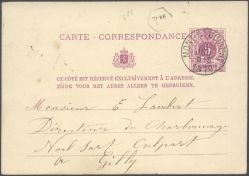 CARTE-CORRESPONDANCE
5
CE CÔTÉ EST RÉSERVÉ EXCLUSIVEMENT À L'ADRESSE.
ZIJDE VOOR HET ADRES ALLEEN TE GEBRUIKEN.
Monsieur E Lambert
Directeur du Charbonnage
Noël Sart Culpart
à Gilly